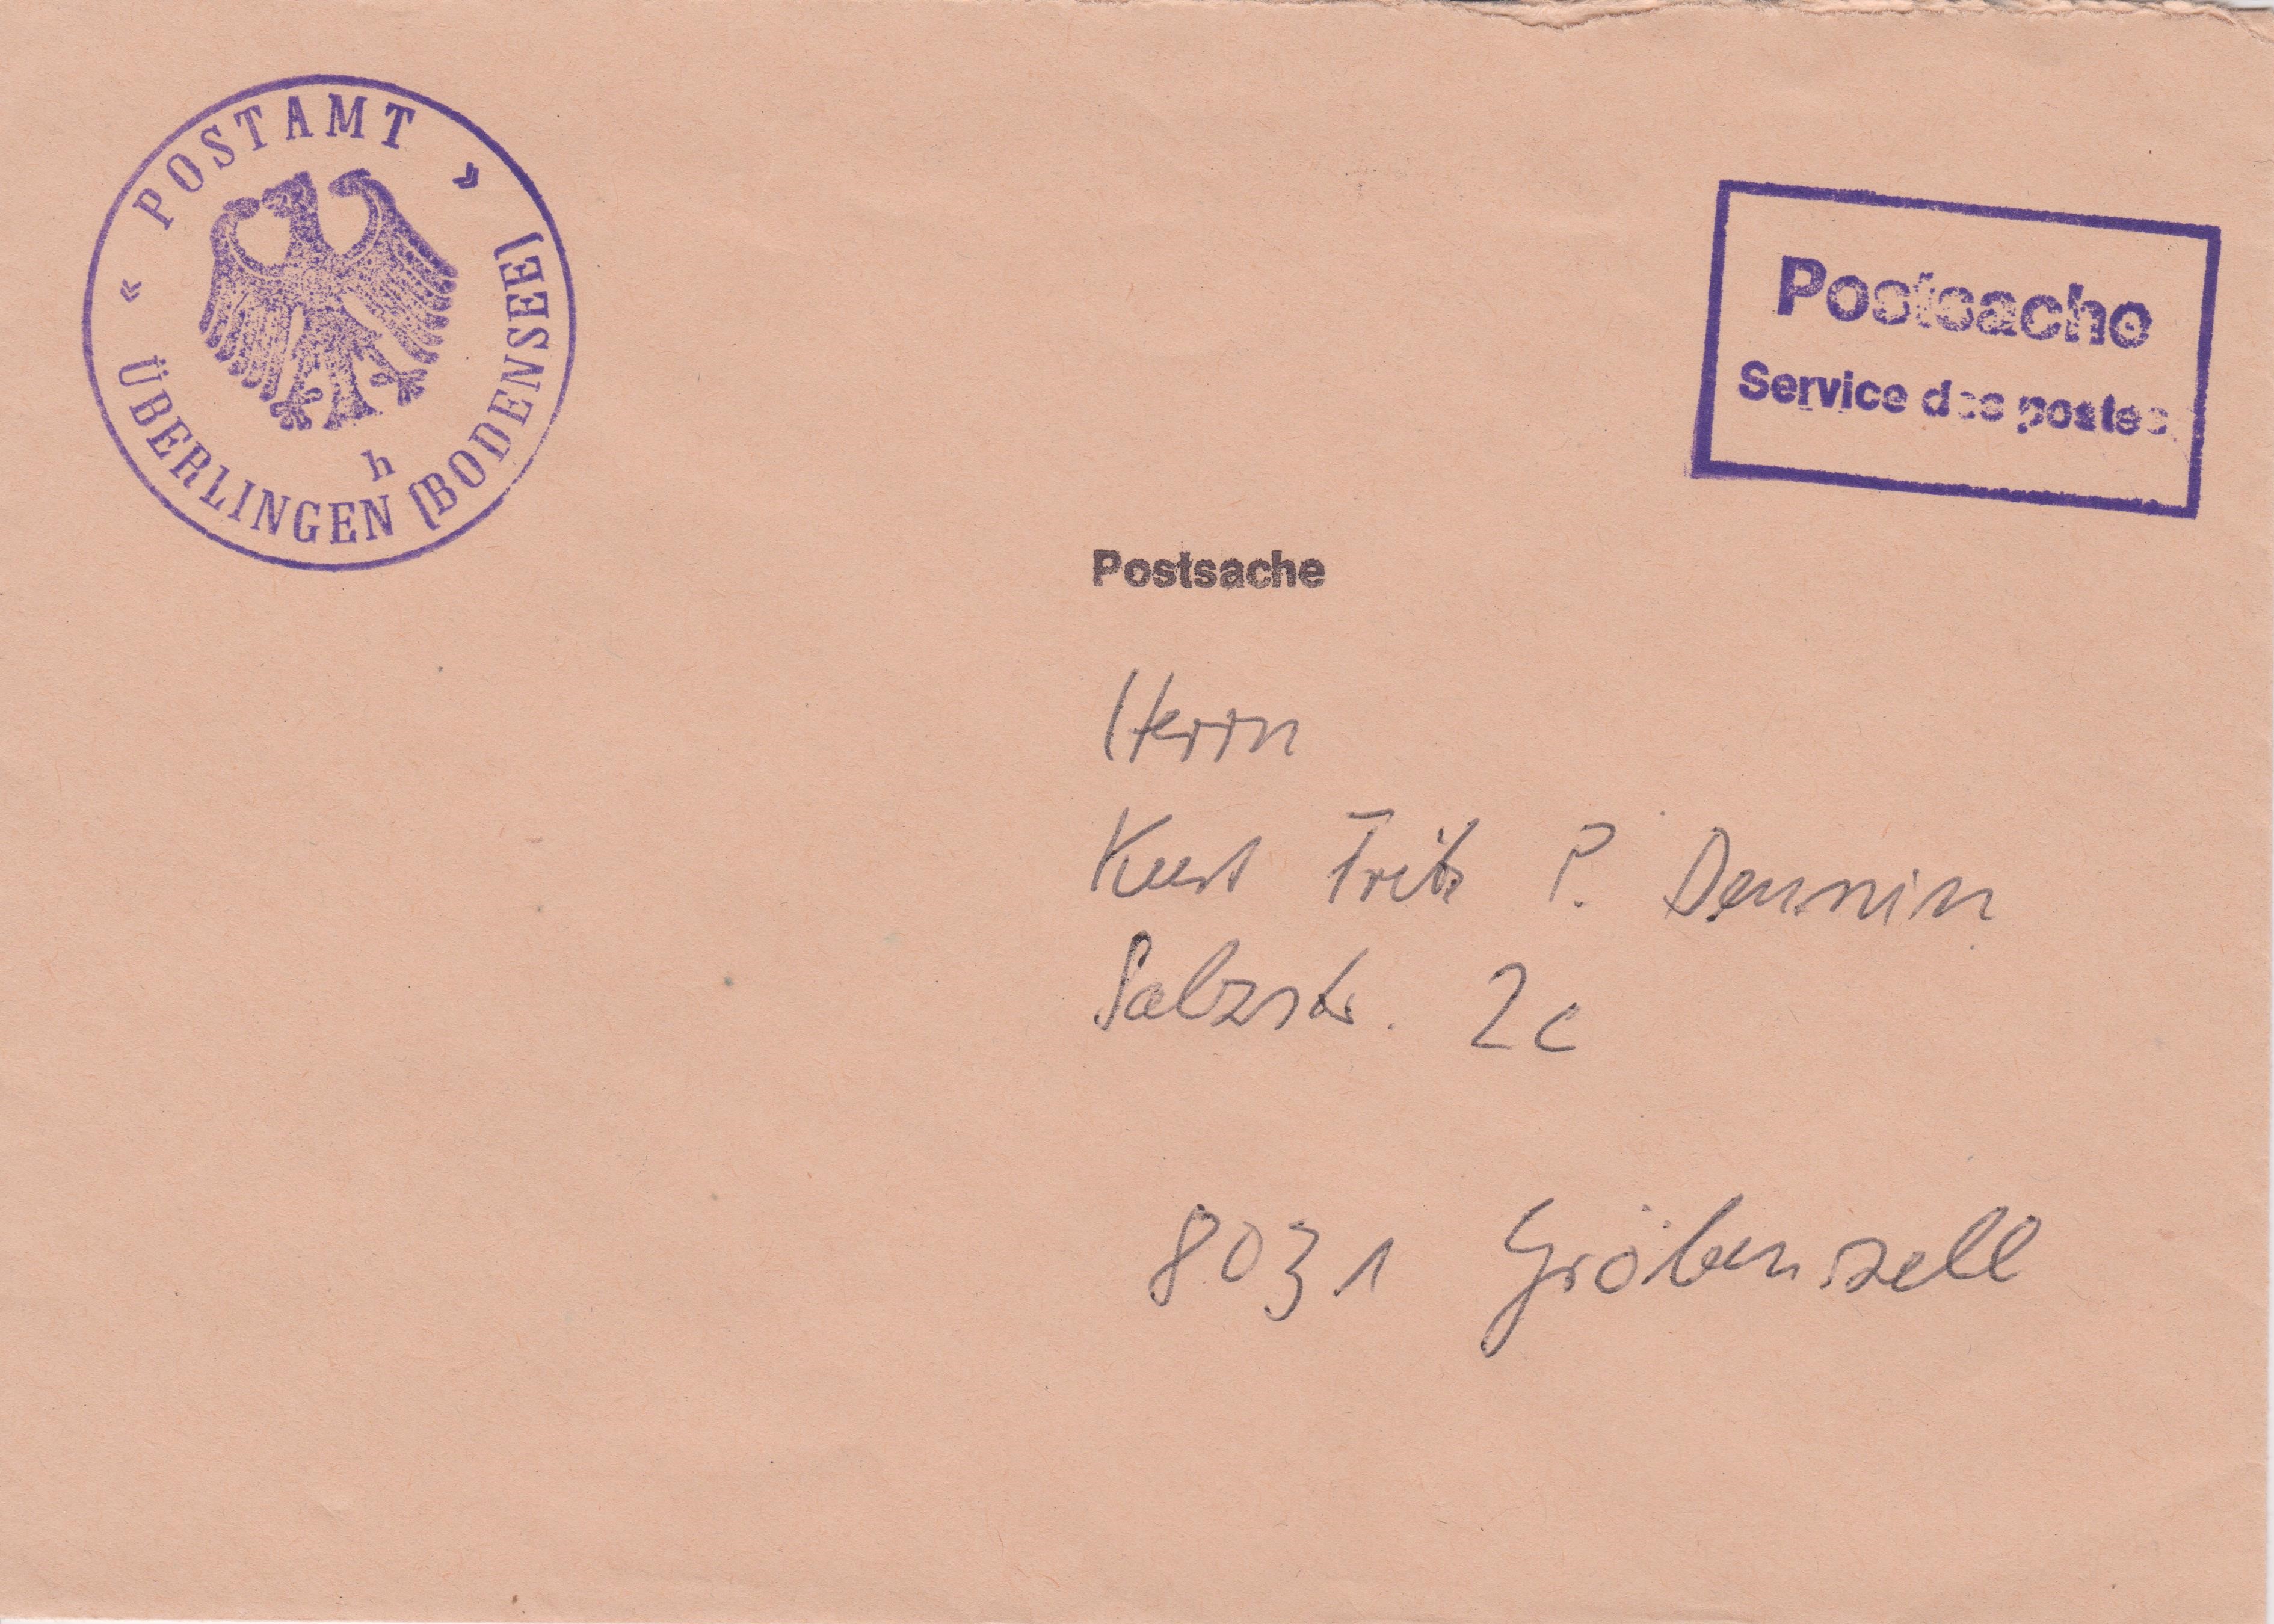 « POSTAMT »
ÜBERLINGEN (BODENSEE)
h
Postsache
Service des postes
Postsache
Herrn
Kurt Fritz P. Dennin
Salzstr. 2c
8031 Gröbenzell